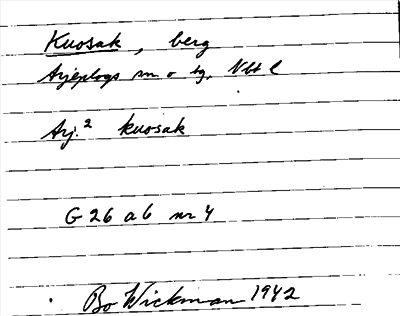 Kuosak, berg
Arjeplogs sn o tg. Nbt l
Arj.² kuosak
G 26 a b nr 4
Bo Wickman 1942